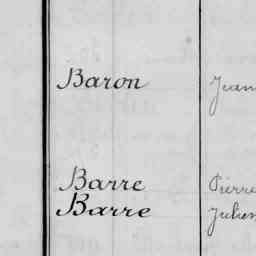 Baron Jean
Barre Pierre
Barre Julien